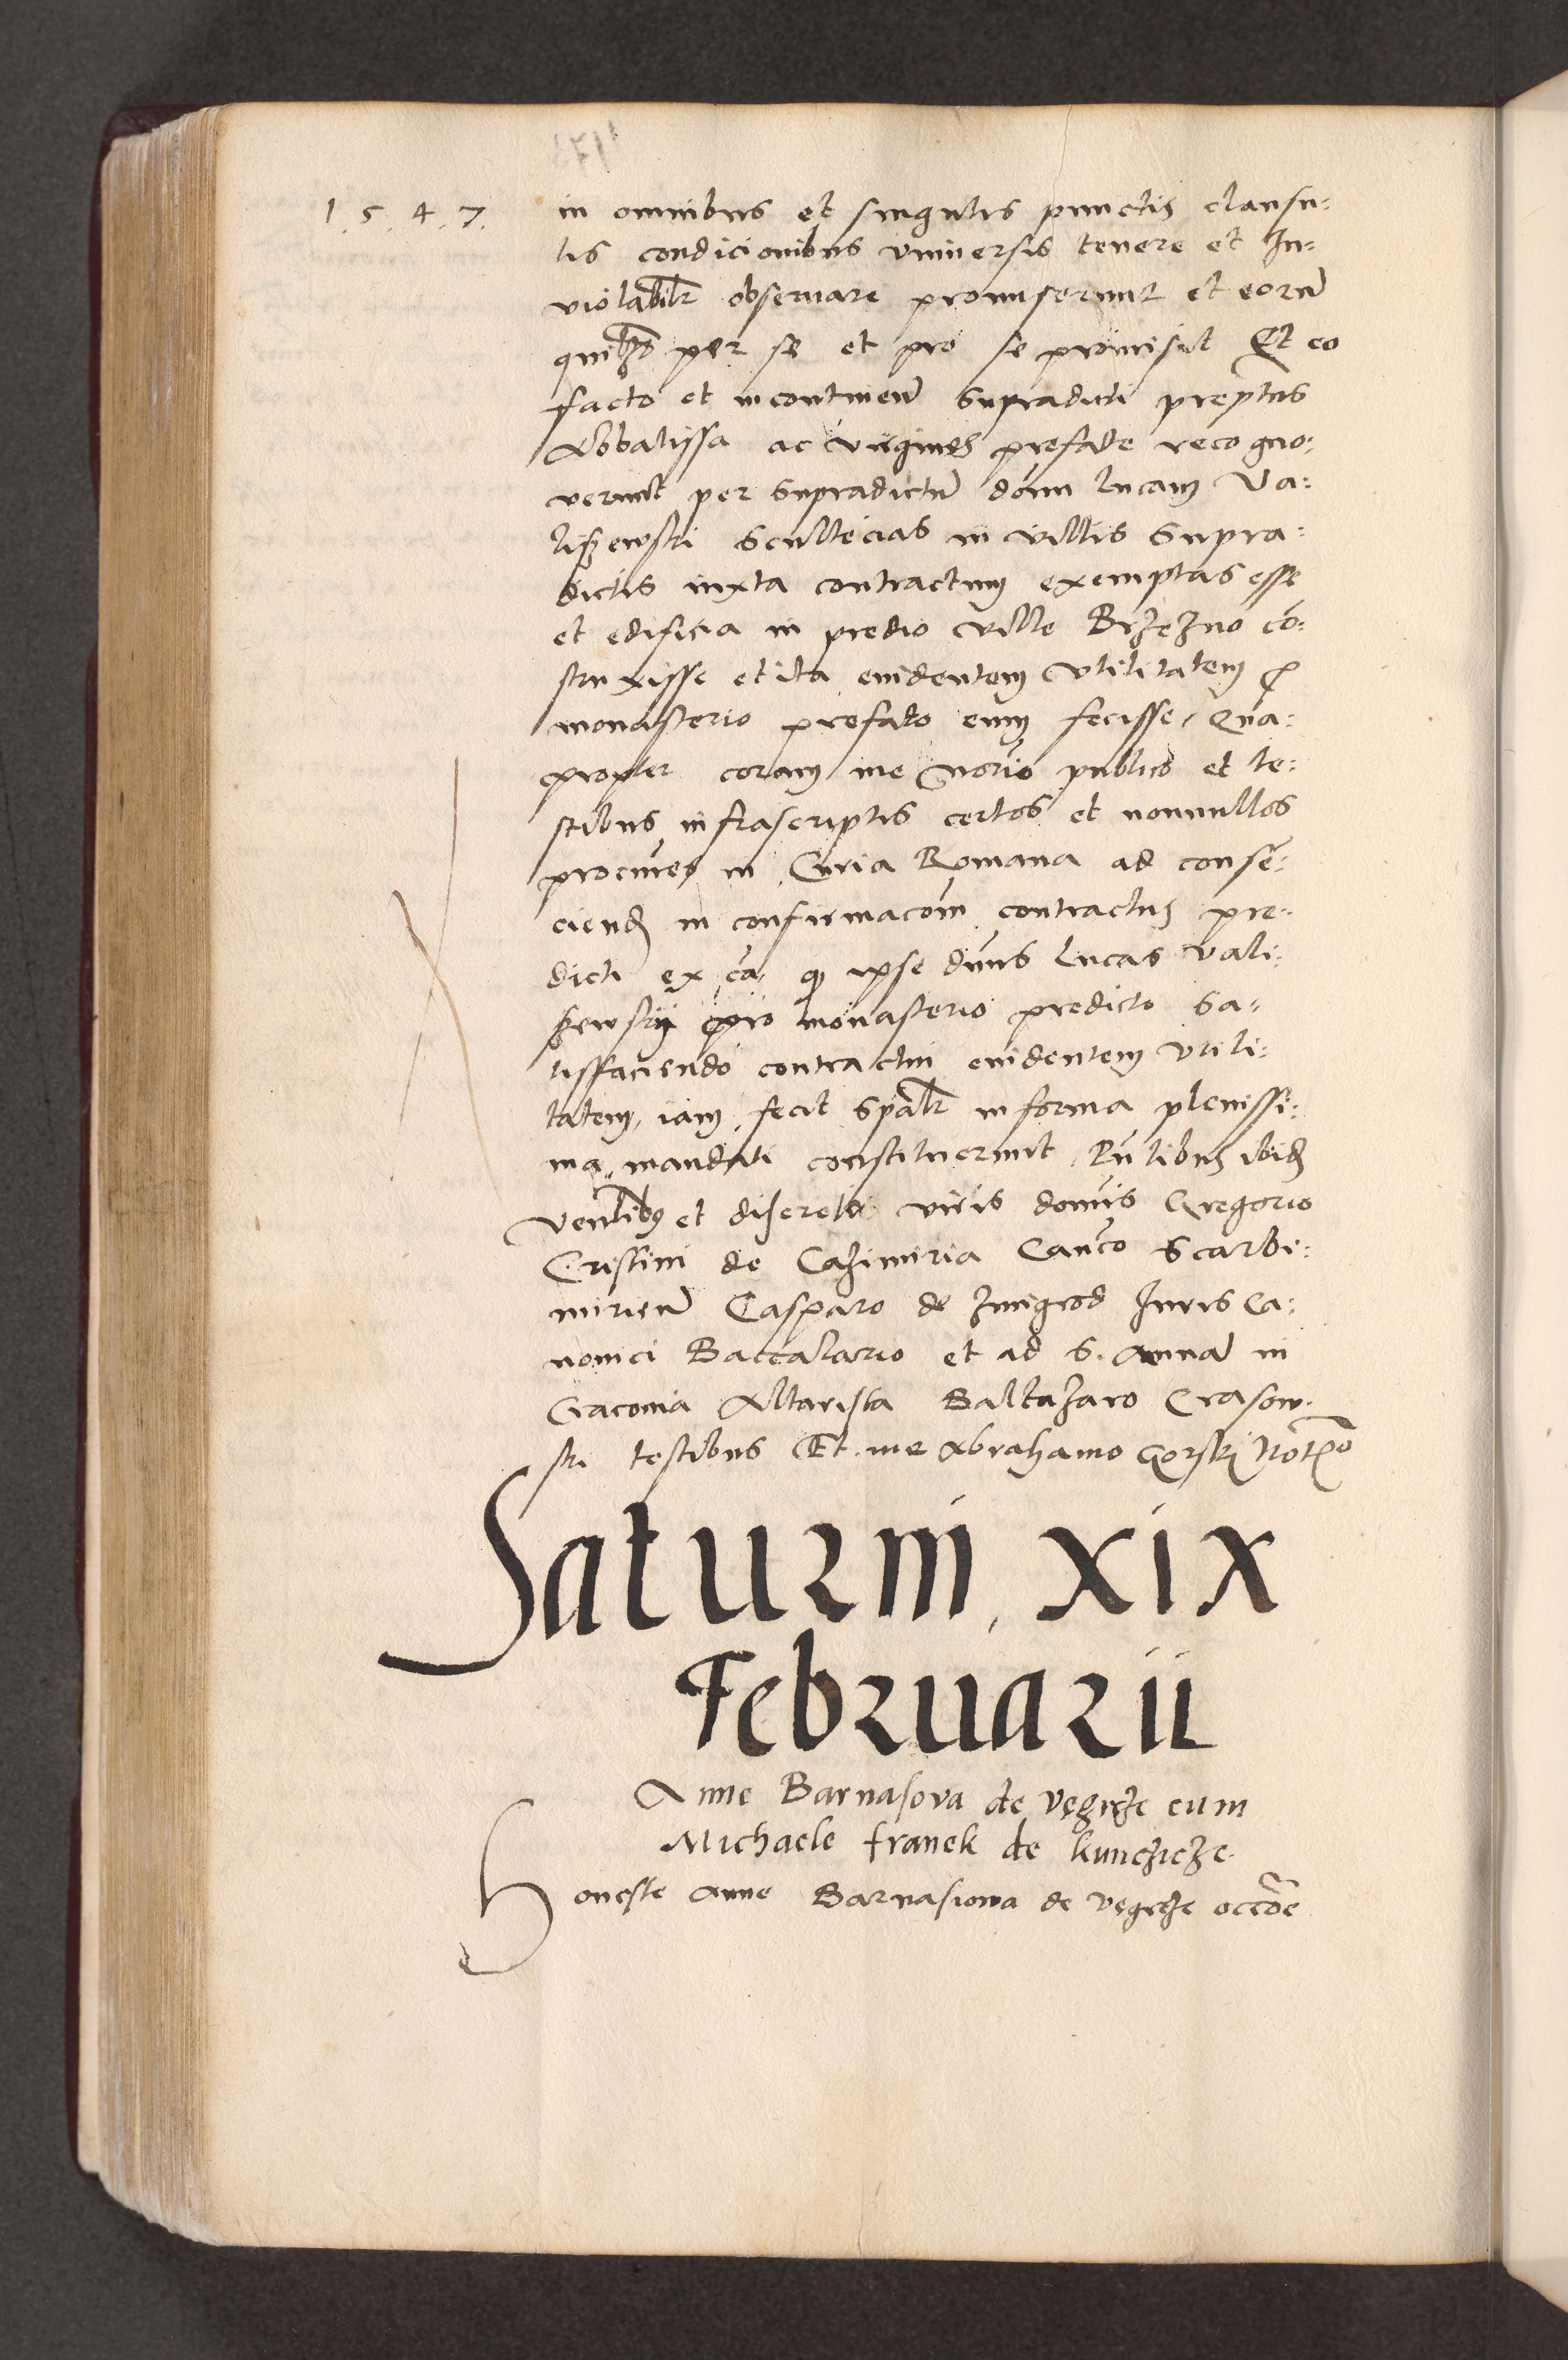 1.5.4.7.
in omnibus et singulis punctis clausu:
lis condicionibus universis tenere et In:
violabilr observare promiserunt et eorum
quilibet per se et pro se promisit Et eo
facto et incontinen supradicti prepositus
Abbatissa ac virgines prefate recogno:
verunt per supradictum domi Lucam Va:
liszewski scultecias in villis supra:
dictis iuxta contractum exemptas esse
et edificia in predio ville Brzezno co:
struxisse et ita evidentem utilitatem p
monasterio prefato eum fecisse, Qua:
propter coram me notario publico et te:
stibus infrascriptis certos et nonnullos
procures in Curia Romana ad consen:
ciend in confirmacom contractus pre:
dicti ex ea q ipse dnus Lucas Vali:
szewskij pro monasterio predicto sa:
tisfaciendo contractui evidentem utili:
tatem, iam, fecit spalr in forma plenissi:
ma, mandati constituerunt, Pntibus ibid
venlibus et discretis viris domis Gregorio
Cristini de Cazimiria Canco Scarbi:
mirien Casparo de Zmigrod Iuris Ca:
nonici Baccalario et ad S. Annam in
Cracovia Altarista Baltazaro Crasow:
ski testibus Et me Abrahamo Gorski Notrio
Saturni, xix
Februarii
Anne Barnasova de Vęgrze cum
Michaele franek de kunczicze
Honeste Anne Barnasiowa de Vęgrze